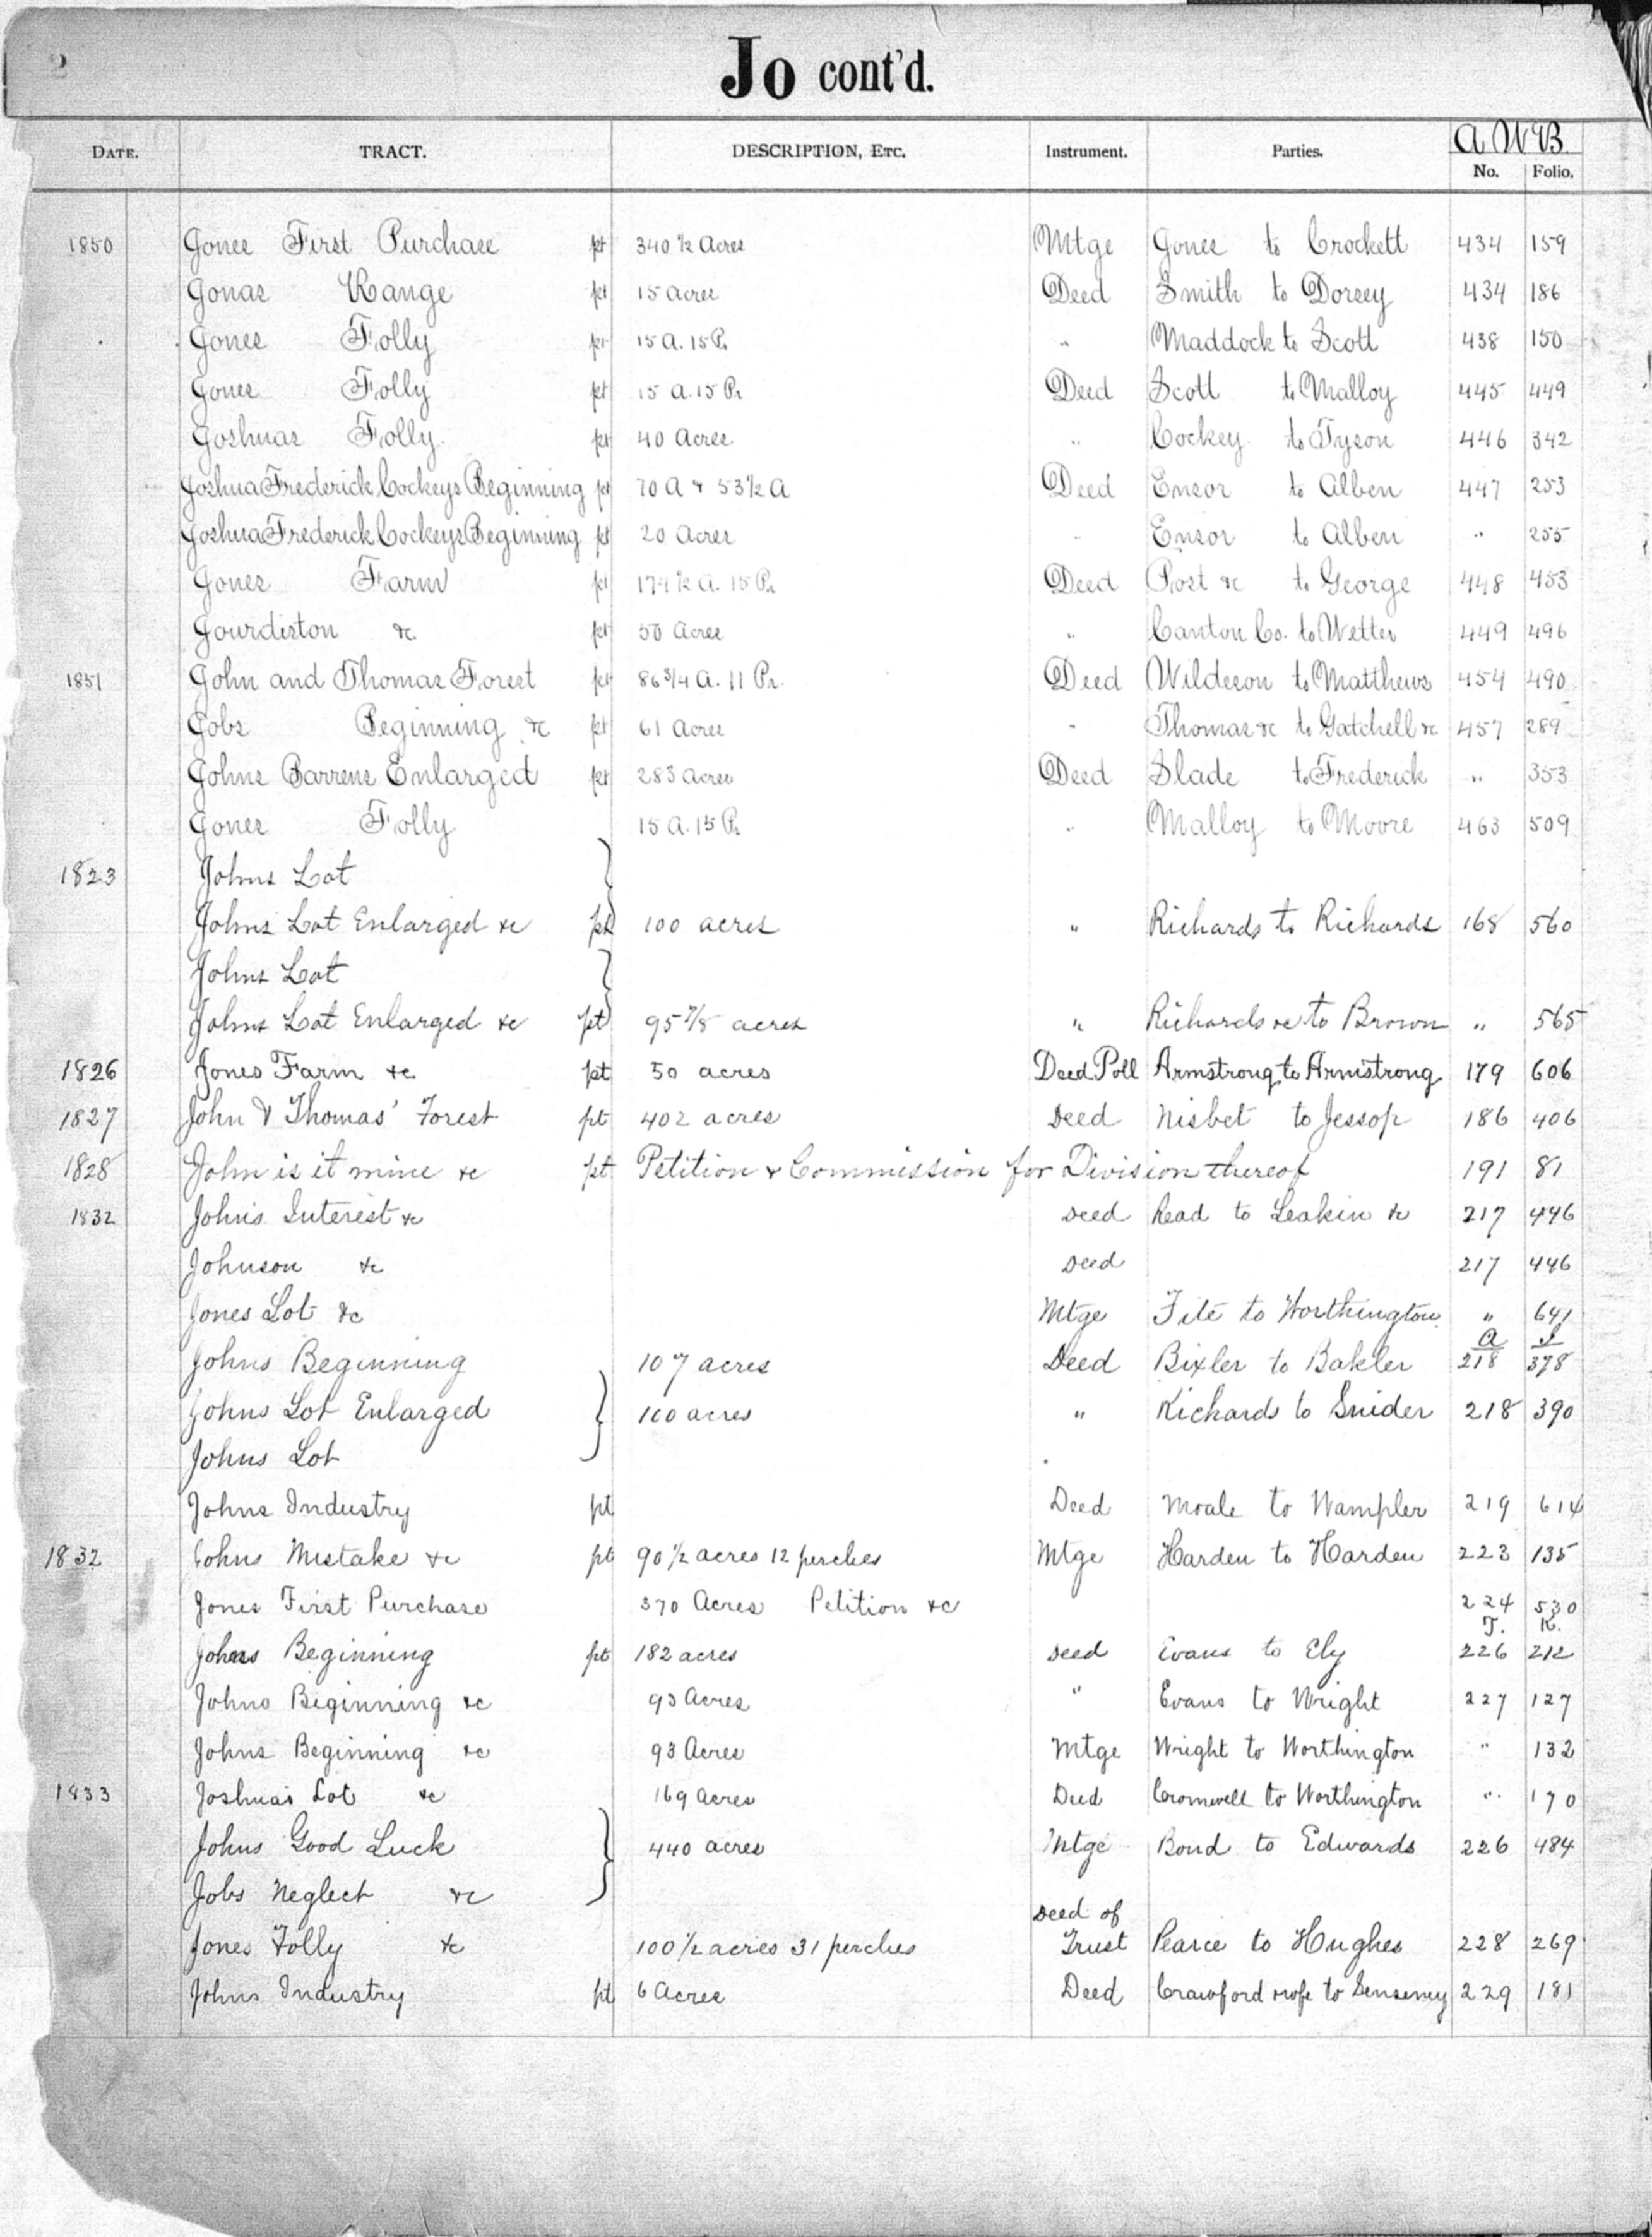 2
Jo cont'd.
A W B
DATE. TRACT. DESCRIPTION, ETC. Instrument. Parties. No. Folio.
1850 Jones First Purchase pt 340 1/2 Acres Mtge Jones to Crockett 434 159
Jonas Range pt 15 Acres Deed Smith to Dorsey 434 186
Jones Folly pt 15 A. 15 P. " Maddock to Scott 438 150
Jones Folly pt 15 A. 15 Pr Deed Scott to Malloy 445 449
Joshuas Folly pt 40 Acres " Cockey to Tyson 446 342
Joshua Frederick Cockeys Beginning pt 70 A & 53 1/2 A Deed Ensor to Alben 447 253
Joshua Frederick Cockeys Beginning pt 20 Acres " Ensor to Alben " 255
Jones Farm pt 174 1/2 A. 15 Pr Deed Post &c to George 448 453
Jourdiston &c pt 50 Acres " Canton Co. to Wetter 449 496
1851 John and Thomas Forest pt 86 3/4 A. 11 Pr. Deed Wilderson to Matthews 454 490
Jobs Beginning &c pt 61 Acres " Thomas &c to Gatchell &c 457 289
Johns Barrens Enlarged pt 283 acres Deed Slade to Frederick " 353
Jones Folly 15 A. 15 Pr " Malloy to Moore 463 509
1823 Johns Lot
Johns Lot Enlarged &c pt 100 acres " Richards to Richards 168 560
Johns Lot
Johns Lot Enlarged &c pt 95 7/8 acres " Richards &c to Brown " 565
1826 Jones Farm &c pt 50 acres Deed Poll Armstrong to Armstrong 179 606
1827 John & Thomas' Forest pt 402 acres Deed Nisbet to Jessop 186 406
1828 John is it mine &c pt Petition & Commission for Division thereof 191 81
1832 John's Interest &c Deed Read to Leakin &c 217 446
Johnson &c Deed 217 446
Jones Lot &c Mtge Fite to Worthington " 641
A I
Johns Beginning 107 acres Deed Bixler to Bakler 218 378
Johns Lot Enlarged 100 acres " Richards to Snider 218 390
Johns Lot
Johns Industry pt Deed Moale to Wampler 219 614
1832 Johns Mistake &c pt 90 1/2 acres 12 perches Mtge Harden to Harden 223 135
Jones First Purchase 370 Acres Petition &c 224 530
T. K.
Johns Beginning pt 182 acres Deed Evans to Ely 226 212
Johns Beginning &c 93 Acres " Evans to Wright 227 127
Johns Beginning &c 93 Acres Mtge Wright to Worthington " 132
1833 Joshuas Lot &c 169 Acres Deed Cromwell to Worthington " 170
Johns Good Luck 440 acres Mtge Bond to Edwards 226 484
Jobs Neglect &c
Deed of
Jones Folly &c 100 1/2 acres 31 perches Trust Pearce to Hughes 228 269
Johns Industry pt 6 Acres Deed Crawford to Senseney 229 181